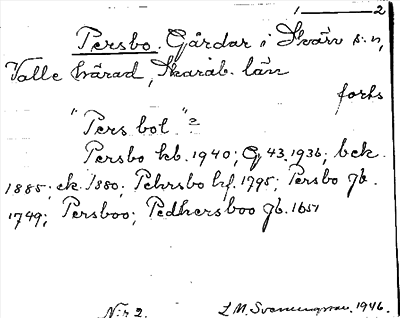 1 ——— 2
Persbo. Gårdar i Skärv s:n,
Valle härad, Skarab. län
forts
"Pers bol" =
Persbo kb. 1940; G 43. 1936; bek.
1885; ek. 1880; Pehrsbo hf. 1795; Persbo jb.
1749; Persboo; Pedhersboo jb. 1651
N:r 2. 1946.